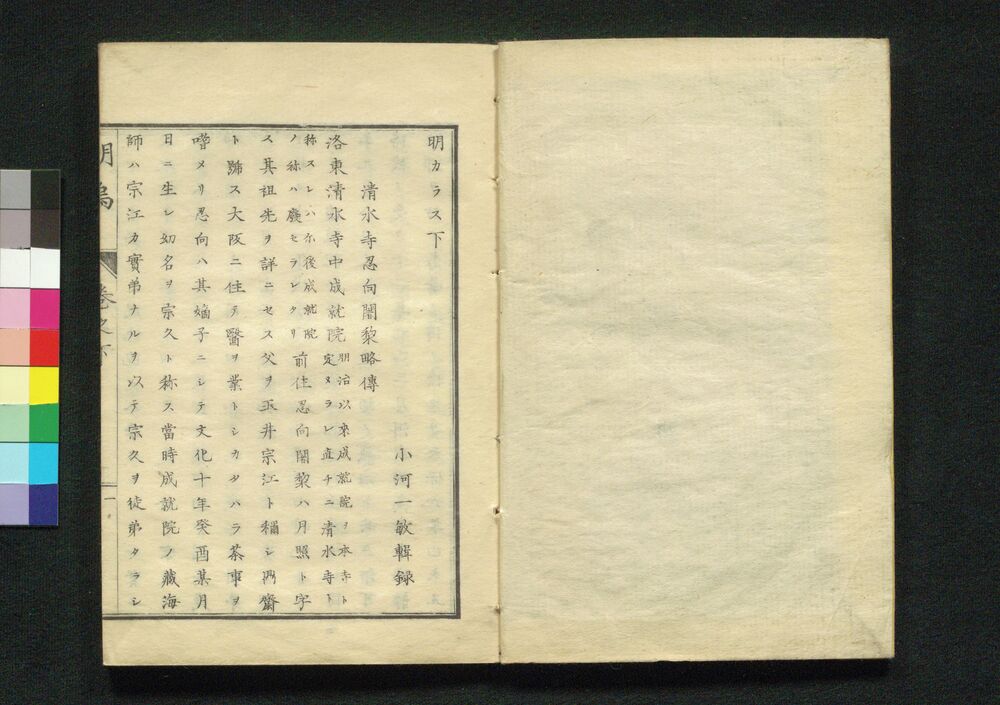 明カラス下
小河一敏輯録
清水寺忍向闍黎略傳
洛東清水寺中成就院明治以來成就院ヲ本寺ト
定メラレ直チニ清水寺ト
称スレハ尓後成就院
ノ称ハ廢セラレタリ前住忍向闍黎ハ月照ト字
ス其祖先ヲ詳ニセス父ヲ玉井宗江ト稱シ齋
ト號ス大阪ニ住テ醫ヲ業トシカタハラ茶事ヲ
嗜メリ忍向ハ其嫡子ニシテ文化十年癸酉某月
日ニ生レ幼名ヲ宗久ト称ス當時成就院ノ藏海
師ハ宗江カ實弟ナルヲ以テ宗久ヲ徒弟タラシ
明烏 卷之下 一